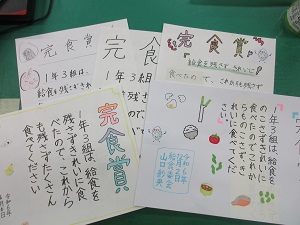 完食賞
1年3組は、
給食を残さず
完食賞
1年3組
給食を残
完食賞
給食を残さずきれいに
食べたので、これからも残さず
完食賞
1年3組は、給食を
残さずきれいに食
べたので、これから
も残さずたくさん
食べてください
1年3組は、給食を
のこさずきれいに
食べたのでこれか
らものこさずき
れいに食べてくだ
さい
令和6年
12月2日
給食委員会